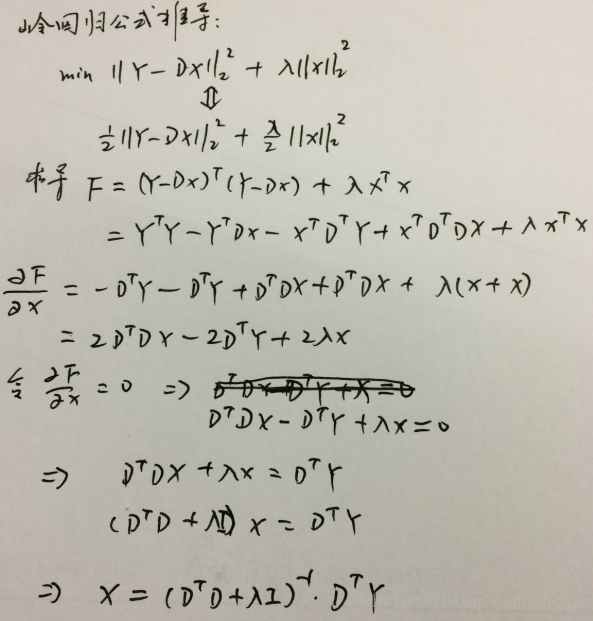 岭回归公式推导:
min ||Y-DX||₂² + λ||x||₂²
⇕
½||Y-Dx||₂² + λ/2 ||x||₂²
求导 F = (Y-Dx)ᵀ(Y-Dx) + λxᵀx
= YᵀY - YᵀDx - xᵀDᵀY + xᵀDᵀDX + λxᵀx
∂F/∂x = -DᵀY - DᵀY + DᵀDX + DᵀDX + λ(x+x)
= 2DᵀDX - 2DᵀY + 2λx
令 ∂F/∂x = 0 => DᵀDx-DᵀY+X=0
DᵀDX - DᵀY + λx = 0
=> DᵀDX + λx = DᵀY
(DᵀD + λI) x = DᵀY
=> X = (DᵀD+λI)⁻¹· DᵀY